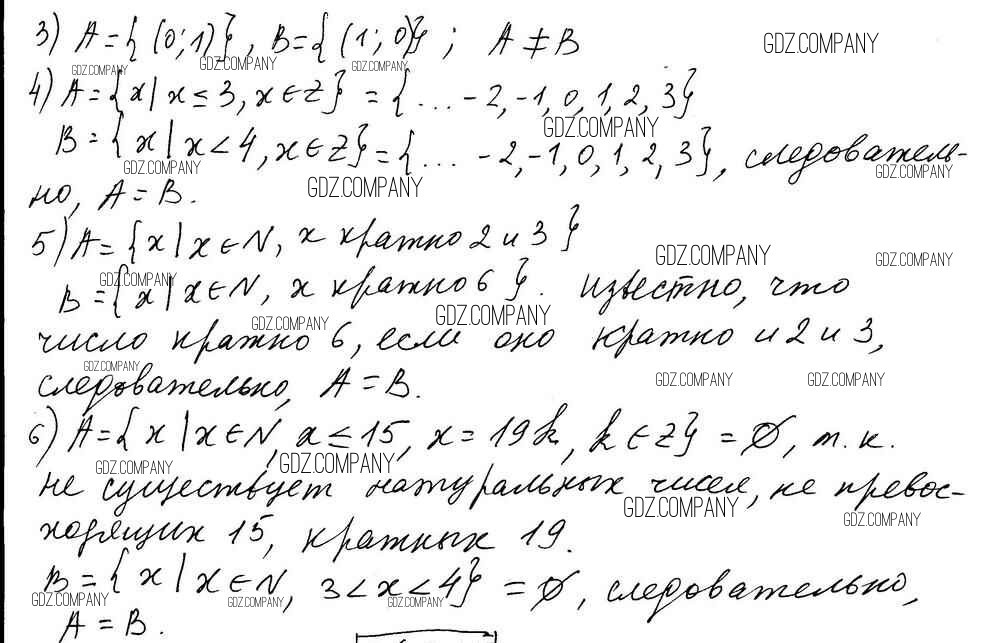 3) A={(0;1)}, B={(1;0)}; A≠B
GDZ.COMPANY
GDZ.COMPANY GDZ.COMPANY GDZ.COMPANY
4) A={x|x≤3, x∈Z} = {...-2,-1,0,1,2,3}
GDZ.COMPANY
B={x|x<4, x∈Z}={...-2,-1,0,1,2,3}, следователь-
GDZ.COMPANY GDZ.COMPANY GDZ.COMPANY
но, A=B.
5) A={x|x∈N, x кратно 2 и 3}
GDZ.COMPANY GDZ.COMPANY GDZ.COMPANY
B={x|x∈N, x кратно 6}. Известно, что
GDZ.COMPANY GDZ.COMPANY
число кратно 6, если оно кратно и 2 и 3,
GDZ.COMPANY GDZ.COMPANY GDZ.COMPANY
следовательно, A=B.
6) A={x|x∈N, x≤15, x=19k, k∈Z} = ∅, т.к.
GDZ.COMPANY GDZ.COMPANY
не существует натуральных чисел, не превос-
GDZ.COMPANY GDZ.COMPANY
ходящих 15, кратных 19.
B={x|x∈N, 3<x<4} = ∅, следовательно,
GDZ.COMPANY GDZ.COMPANY GDZ.COMPANY
A=B.